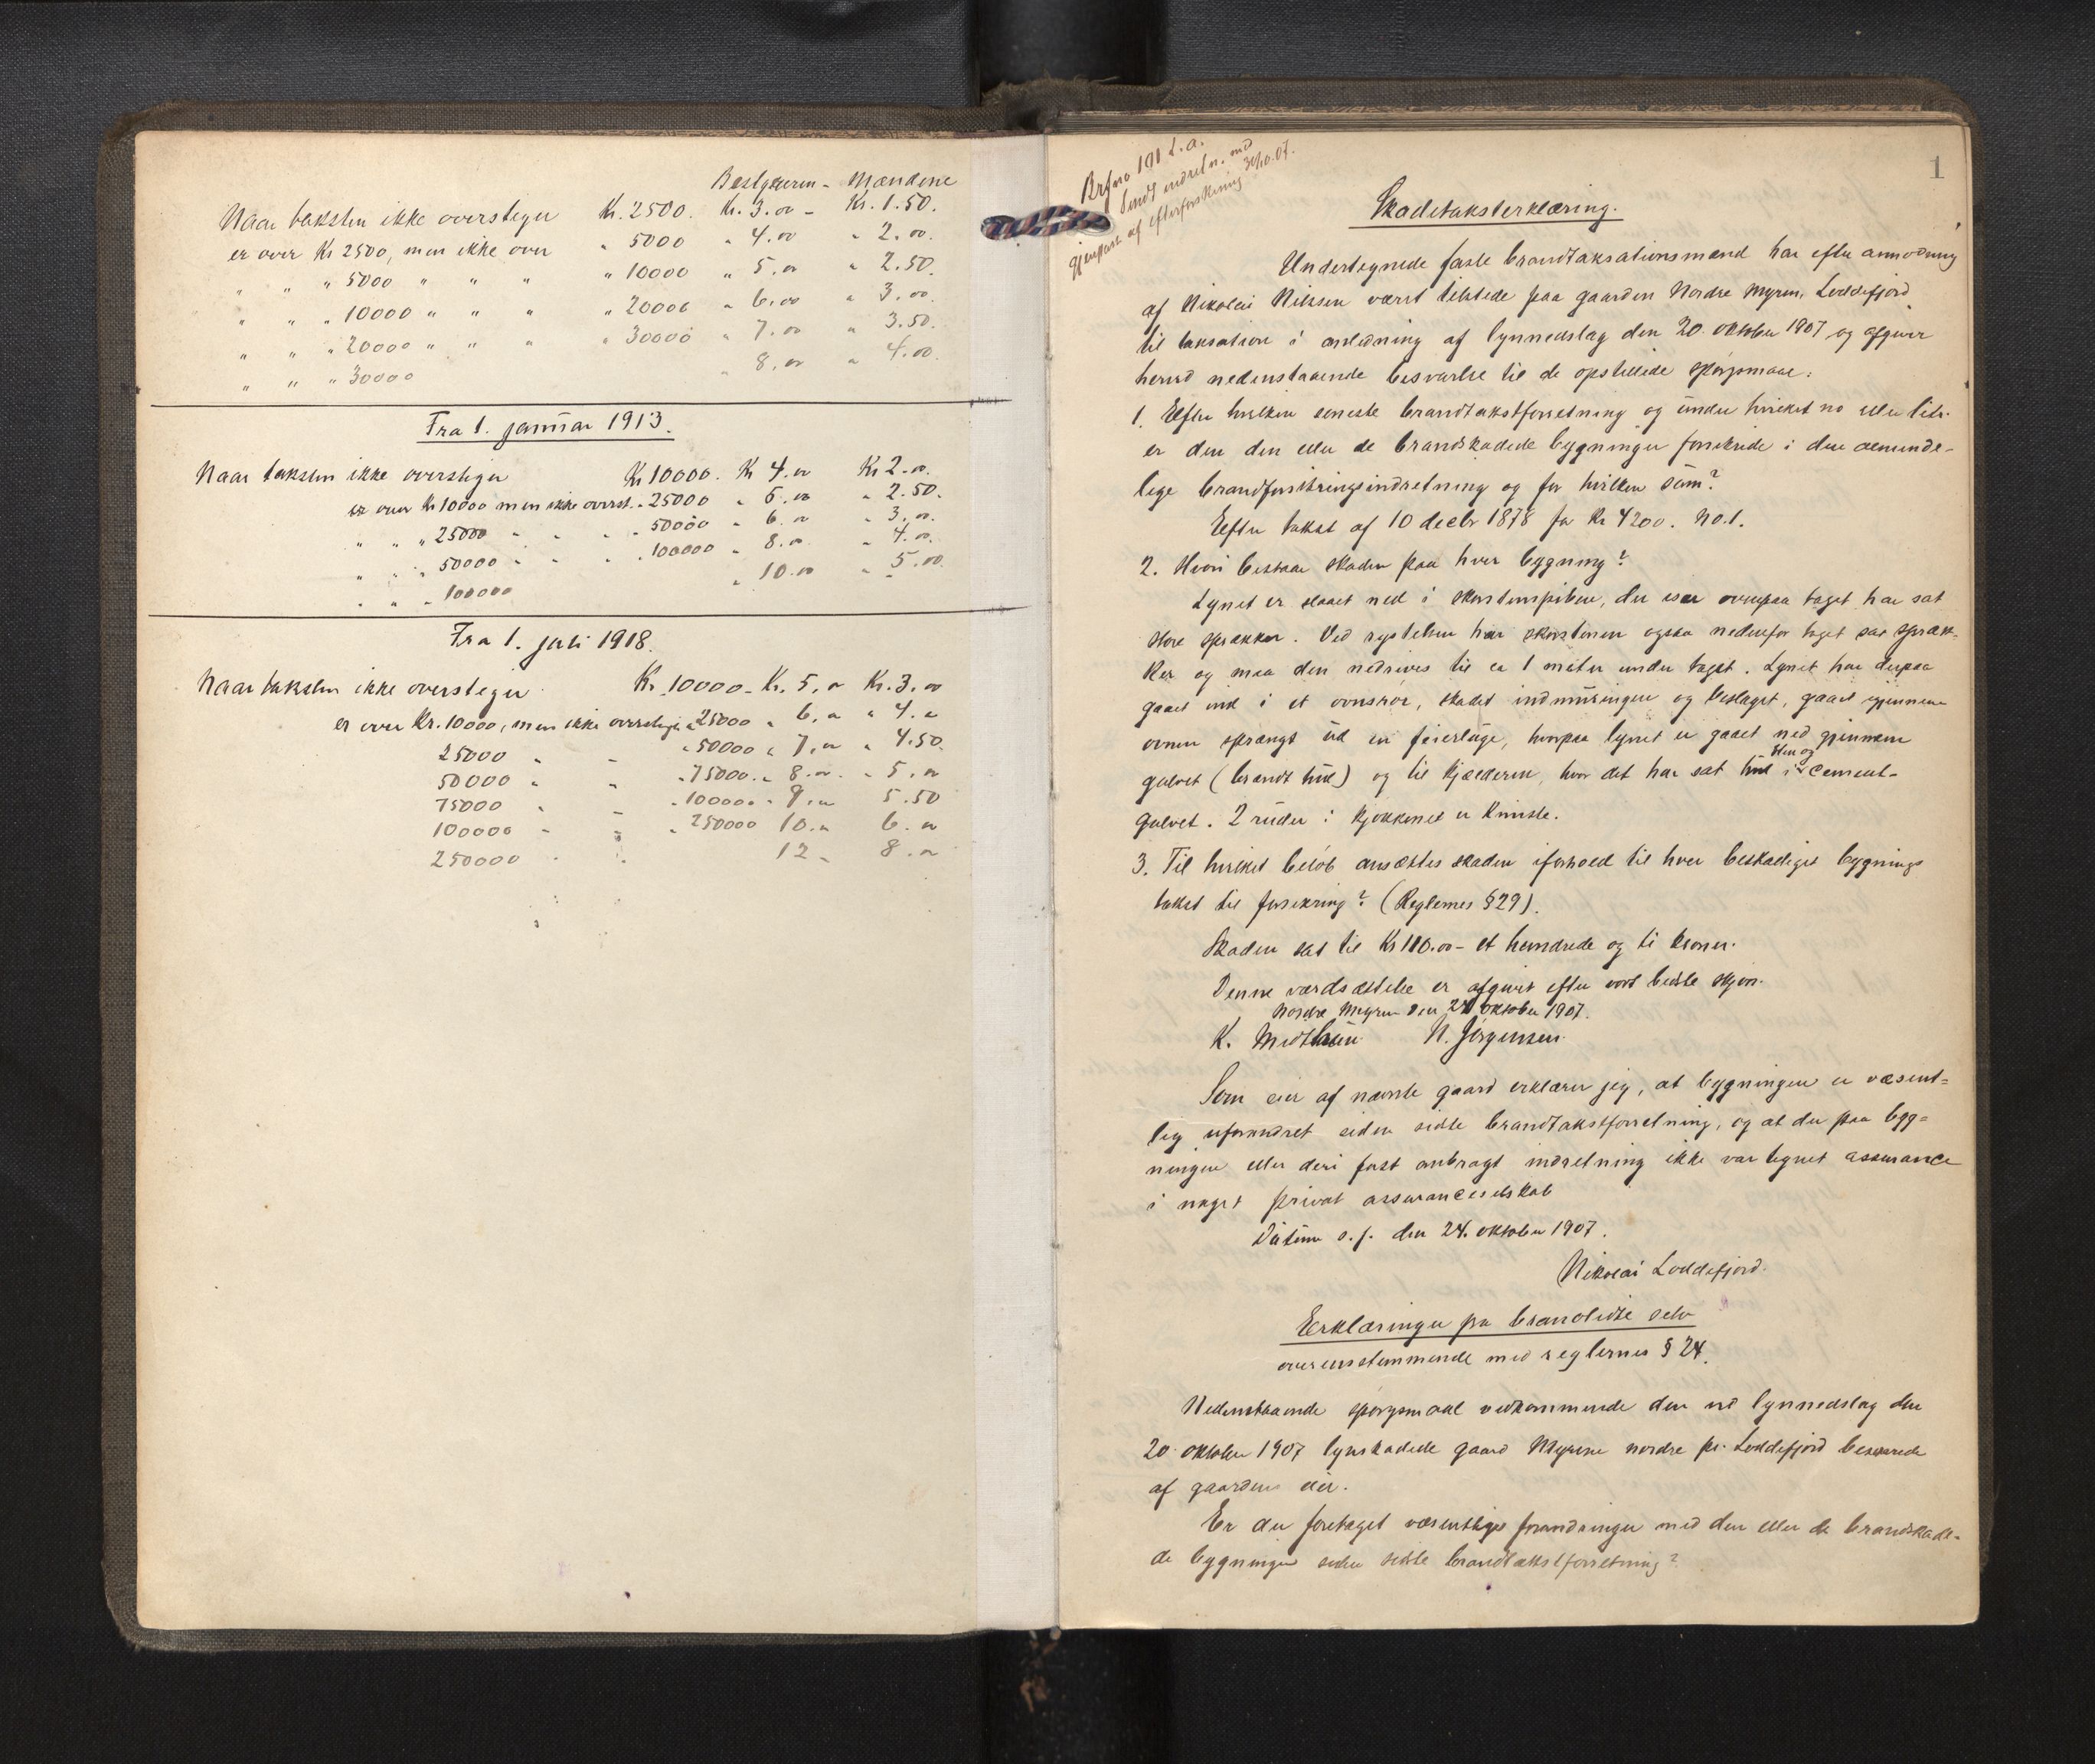 Bestyreren - Mændene
Naar taksten ikke overstiger Kr. 2500. Kr. 3.00 - Kr. 1.50.
er over Kr 2500, men ikke over " 5000 " 4.00 " 2.00.
" " " 5000 " " " " 10000 " 5.00 " 2.50.
" " " 10000 " " " " 20000 " 6.00 " 3.00.
" " " 20000 " " " " 30000 " 7.00 " 3.50.
" " " 30000 " 8.00 " 4.00.
Fra 1. januar 1913.
Naar taksten ikke overstiger Kr 10000. Kr 4.00 Kr 2.00.
er over Kr 10000 men ikke overst. " 25000 " 5.00 " 2.50.
" " " 25000 " " " " 50000 " 6.00 " 3.00.
" " " 50000 " " " " 100000 " 8.00 " 4.00.
" " " 100000 " 10.00 " 5.00
Fra 1. juli 1918.
Naar taksten ikke overstiger Kr. 10000 - Kr. 5.00 Kr. 3.00
er over Kr. 10000, men ikke overstiger " 25000 " 6.00 " 4.00
25000 " " " 50000 " 7.00 " 4.50
50000 " " " 75000 " 8.00 " 5.00
75000 " " " 100000 " 9.00 5.50
100000 " " " 250000 10.00 6.00
250000 " " 12 - 8.00
1
Brfno 191 f.a.
Sendt indretn. med
gjenpart af efterforskning 30/10.07.
Skadetaksterklæring.
Undertegnede faste brandtaksationsmænd har efter anmodning
af Nikolai Nilssen været tilstede paa gaarden Nordre Myren, Loddefjord
til taksation i anledning af lynnedslag den 20. oktober 1907 og afgiver
herved nedenstaaende besvarelse til de opstillede spørgsmaal:
1. Efter hvilken seneste brandtakstforretning og under hvilket no eller litr.
er den den eller de brandskadede bygninger forsikrede i den alminde-
lige brandforsikringsindretning og for hvilken sum?
Efter takst af 10 decbr 1878 for Kr 4200. No. 1.
2. Hvori bestaar skaden paa hver bygning?
Lynet er slaaet ned i skorstenspiben, der især ovenpaa taget har sat
store sprækker. Ved rystelsen har skorstenen ogsaa nedenfor taget sat spræk-
ker og maa den nedrives til ca 1 meter under taget. Lynet har derpaa
gaaet ind i et ovnsrør, skadet indmuringen og beslaget, gaaet igjennem
ovnen sprængt ud en feierluge, hvorpaa lynet er gaaet ned gjennem
gulvet (brændt hul) og til kjælderen, hvor det har sat hul i sten og cement-
gulvet. 2 ruder i kjøkkenet er knuste.
3. Til hvilket beløb ansættes skaden iforhold til hver beskadiget bygnings
takst til forsikring? (Reglernes § 29).
Skaden sat til Kr 110.00 - et hundrede og ti kroner.
Denne værdsættelse er afgivet efter vort bedste skjøn.
Nordre Myren den 24 oktober 1907.
K. Midthun N. Jørgensen
Som eier af nævnte gaard erklærer jeg, at bygningen er væsent=
lig uforandret siden sidste brandtakstforretning, og at der paa byg=
ningen eller deri fast anbragt indretning ikke var tegnet assurance
i noget privat assuranceselskab
Datum s. f. den 24. oktober 1907.
Nikolai Loddefjord.
Erklæringer fra brandlidte selv
overensstemmende med reglernes § 24.
Nedenstaaende spørgsmaal vedkommende den ved lynnedslag den
20 oktober 1907 lynskadede gaard Myrene nordre pr. Loddefjord besvarede
af gaardens eier.
Er der foretaget væsentlige forandringer med den eller de brandskade-
de bygninger siden sidste brandtakstforretning?